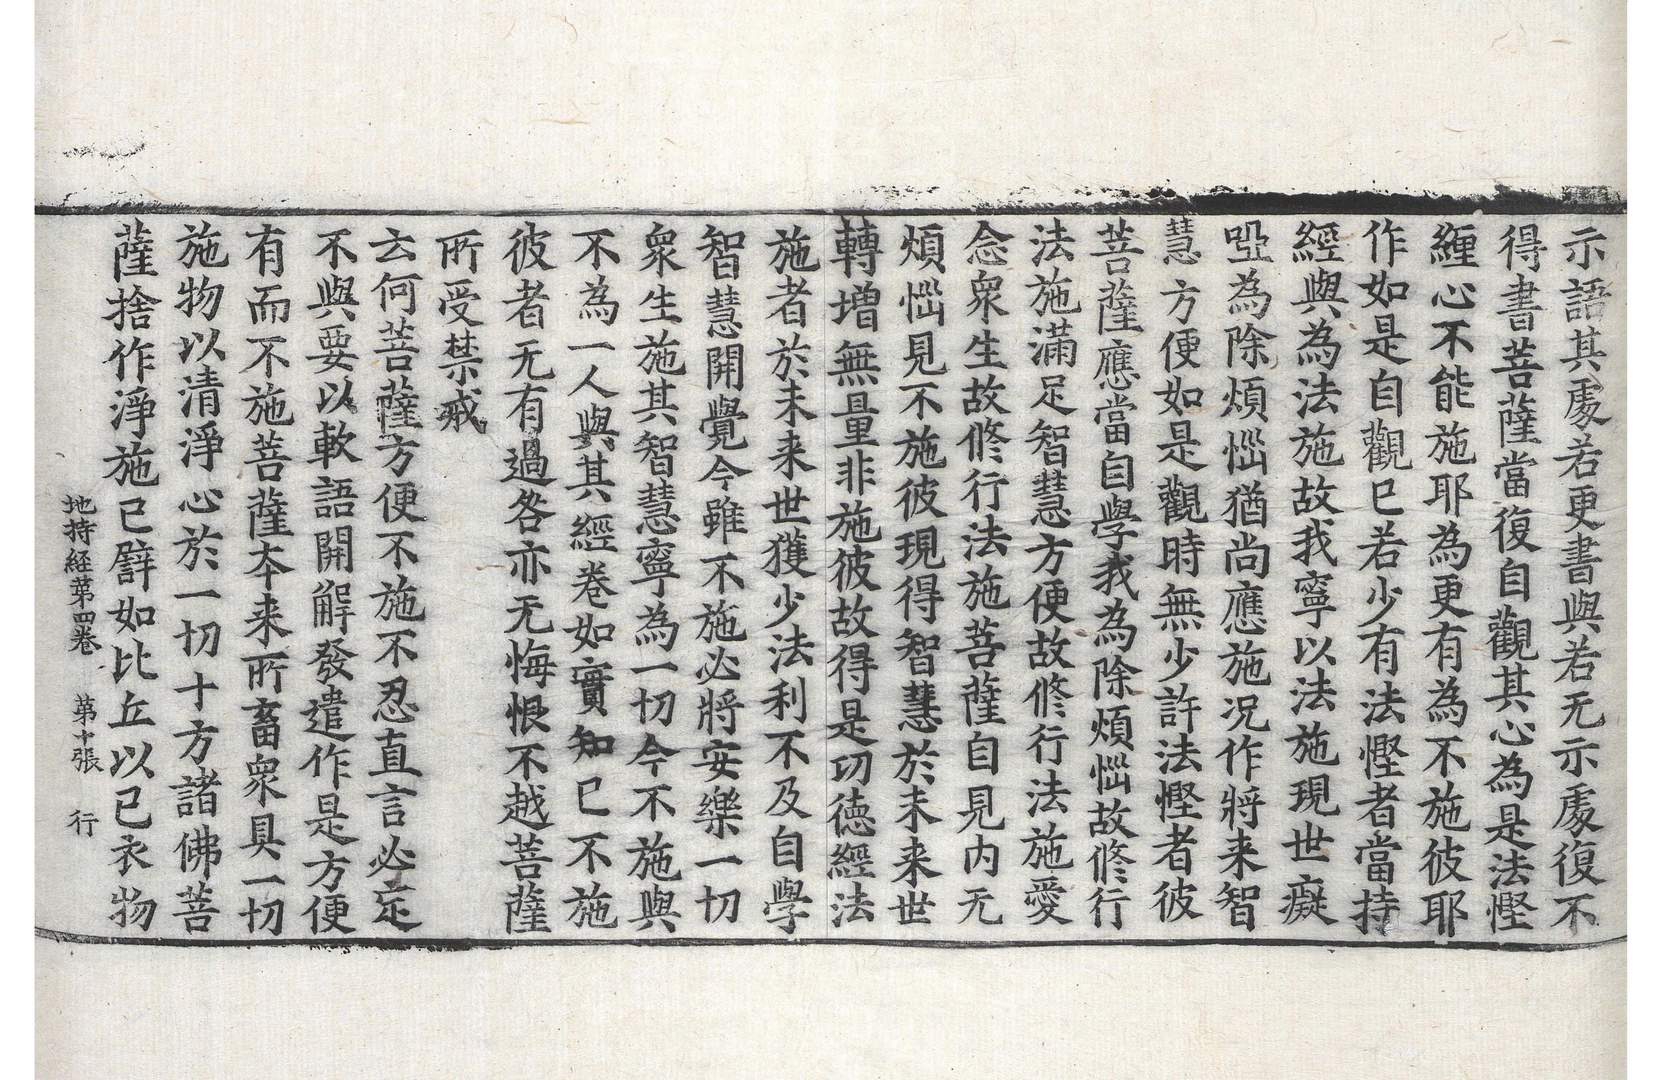 示語其處若更書與若无示處復不
得書菩薩當復自觀其心為是法慳
纏心不能施耶為更有為不施彼耶
作如是自觀已若少有法慳者當持
經與為法施故我寧以法施現世癡
啞為除煩惱猶尚應施况作將来智
慧方便如是觀時無少許法慳者彼
菩薩應當自學我為除煩惱故修行
法施滿足智慧方便故修行法施愛
念衆生故修行法施菩薩自見内无
煩惱見不施彼現得智慧於未来世
轉增無量非施彼故得是功德經法
施者於未来世獲少法利不及自學
智慧開覺今雖不施必將安樂一切
衆生施其智慧寧為一切今不施與
不為一人與其經卷如實知已不施
彼者无有過咎亦无悔恨不越菩薩
所受禁戒
云何菩薩方便不施不忍直言必定
不與要以軟語開解發遣作是方便
有而不施菩薩本来所畜衆具一切
施物以清淨心於一切十方諸佛菩
薩捨作淨施已譬如比丘以已衣物
地持経第四卷　第十張　行